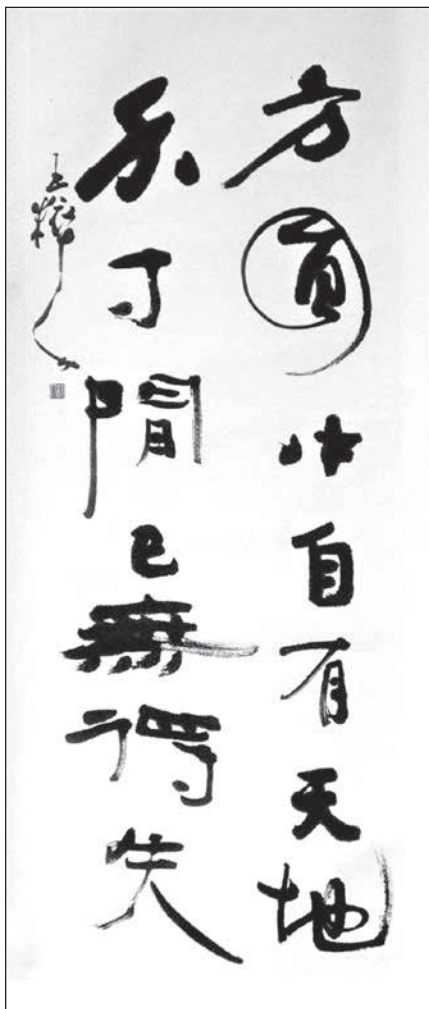 方圓中自有天地
分寸間已無得失